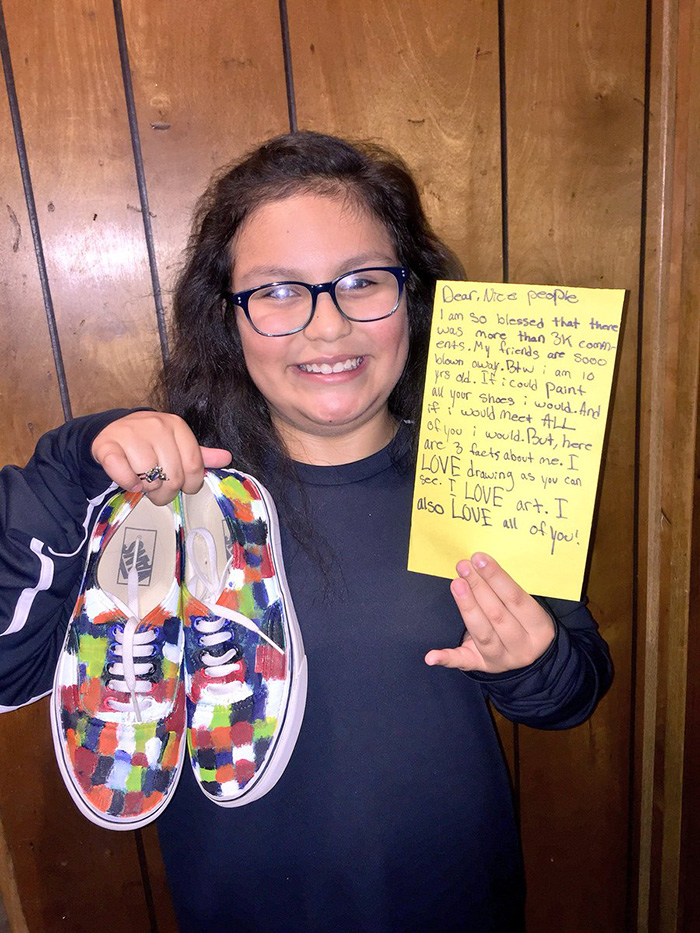 Dear, Nice people
I am so blessed that there
was more than 3K comm-
ents. My friends are sooo
blown away. Btw i am 10
yrs old. If i could paint
all your shoes i would. And
if i would meet ALL
of you i would. But, here
are 3 facts about me. I
LOVE drawing as you can
see. I LOVE art. I
also LOVE all of you!
VANS